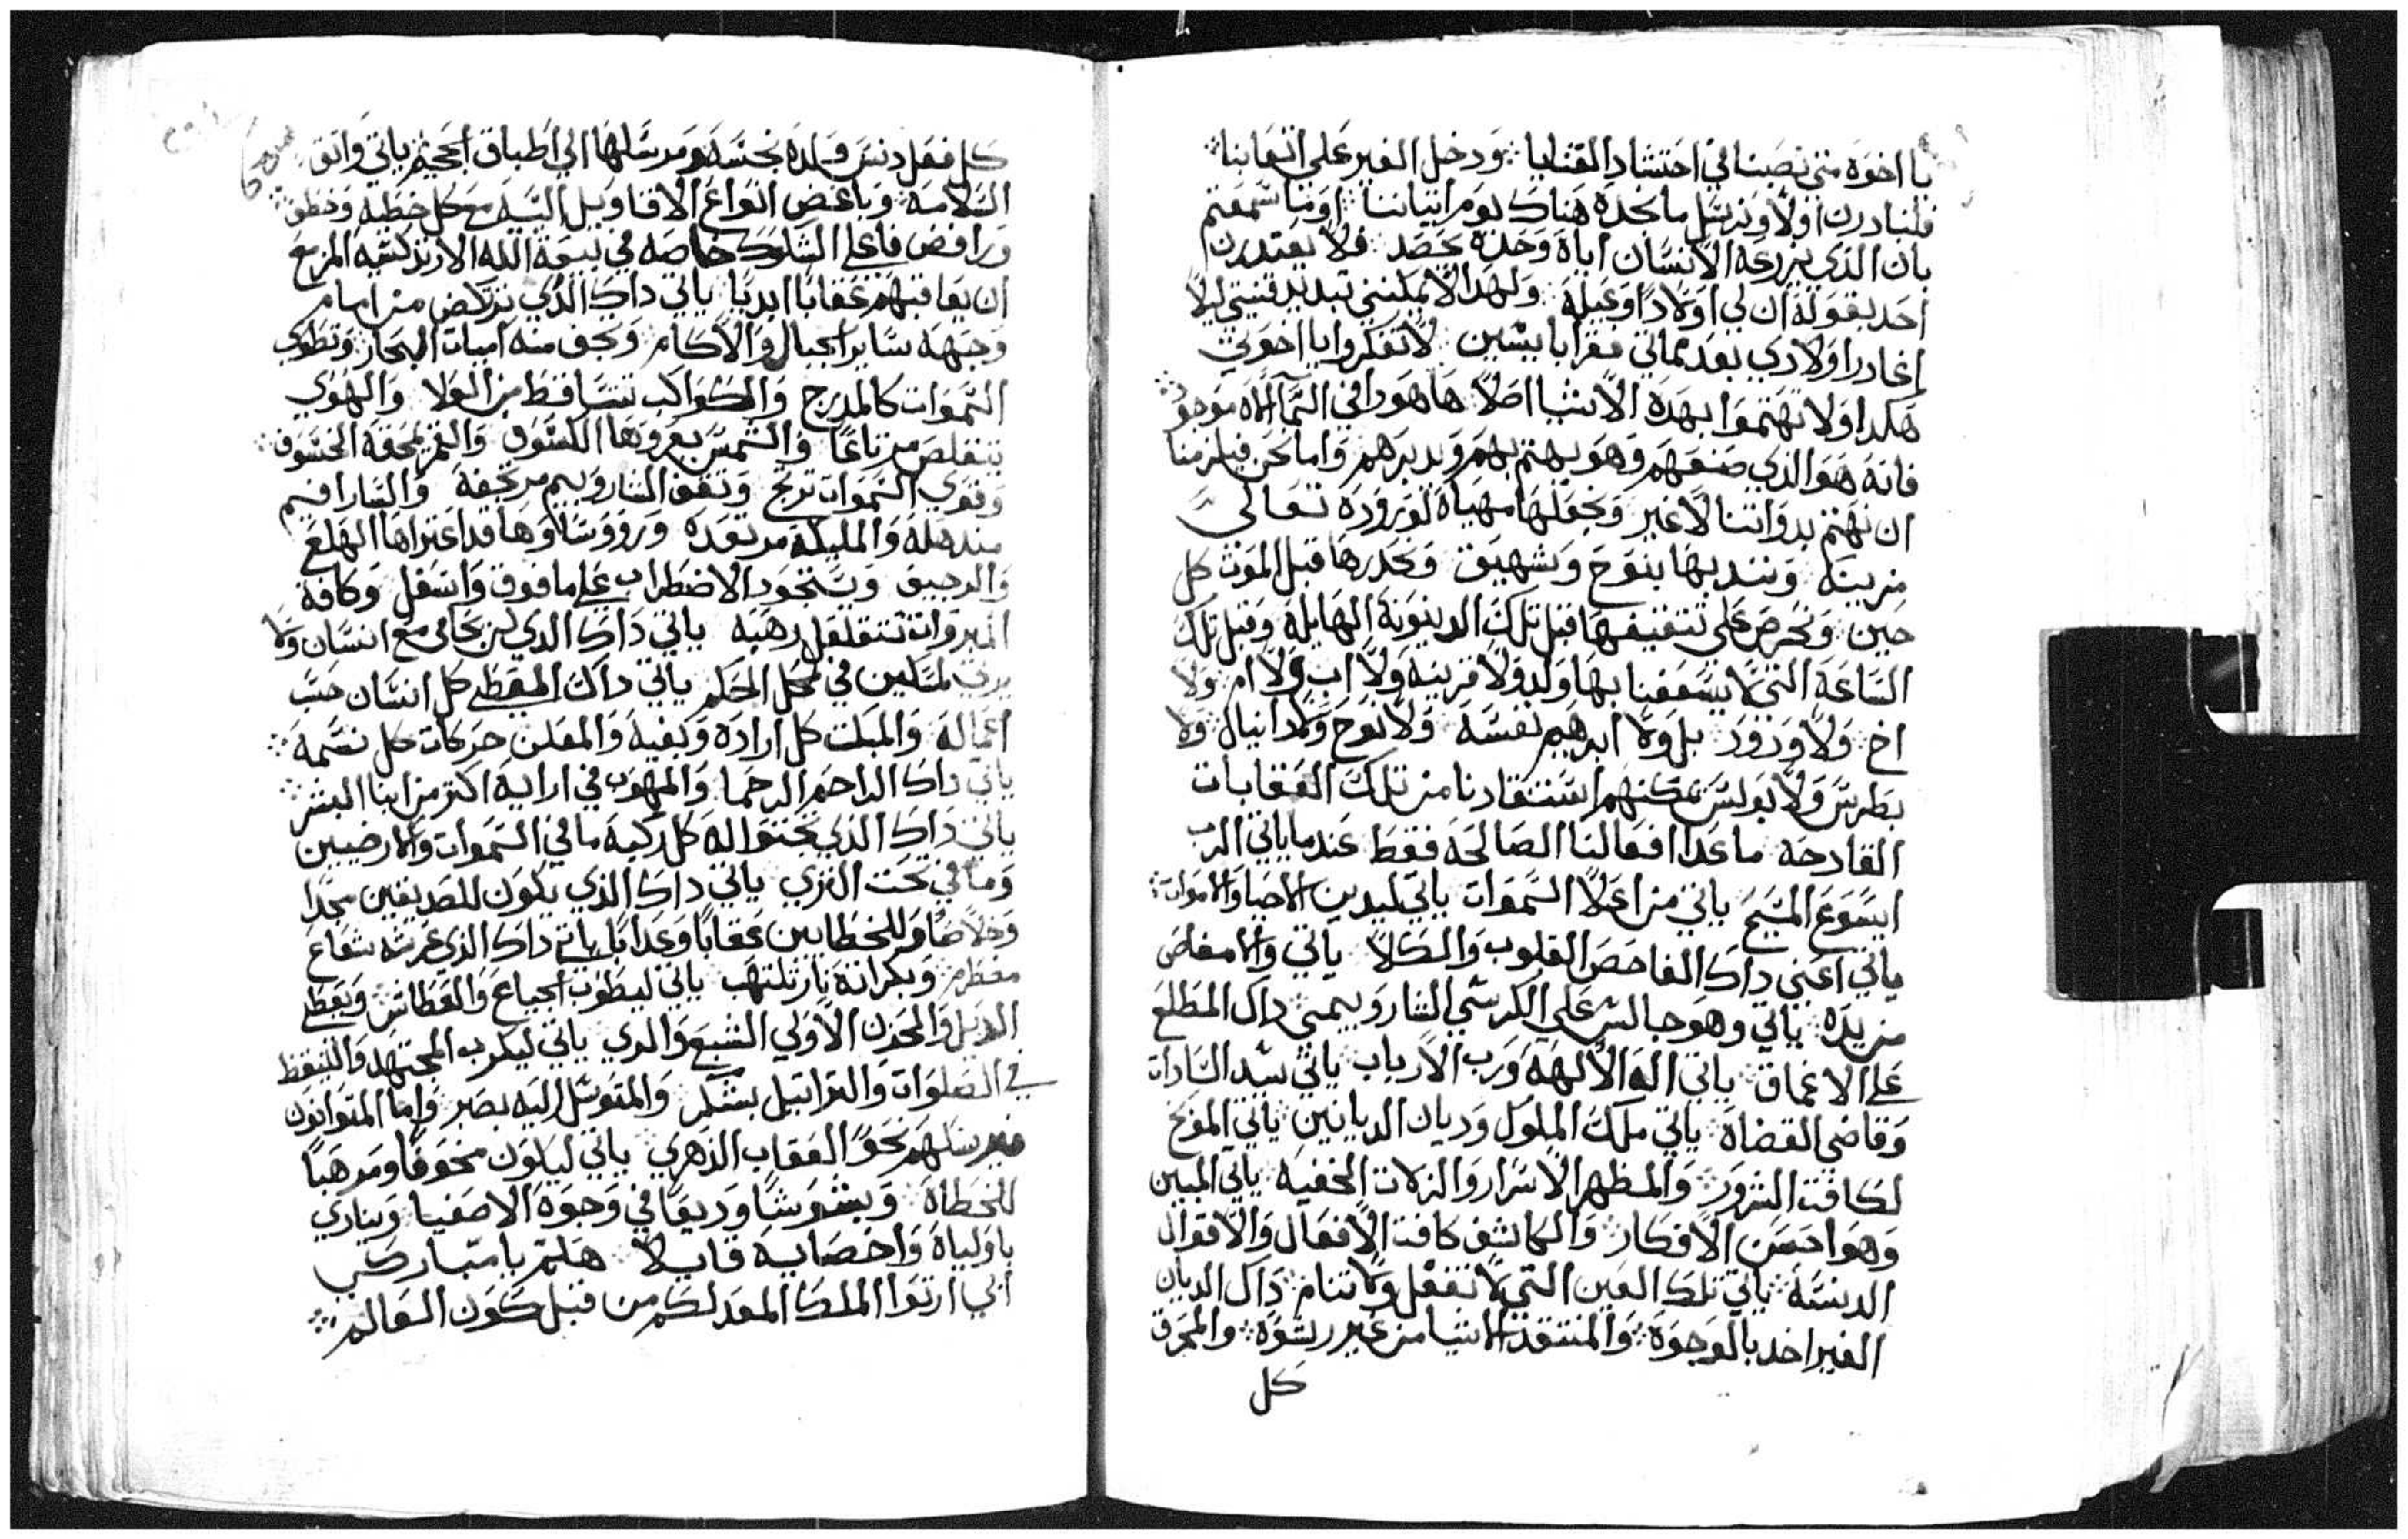 يا اخوه متى نصبنا في احتشاد القنايا ودخل الغير على اتعابنا
فلنبادرن اولا ونرسل ما نجده هناك يوم اتياننا اوما سمعتم
بان الذي يزرعه الانسان اياه وحده يحصد فلا يعتدرن
احد بقوله ان لي اولادا وعيله ولهدا لا يمكنني تبديد قنيتي ليلا
اغادر اولادي بعد مماتي فقرا بايسين لا تفكروا يا اخوتي
هكدا ولا تهتموا بهده الاشيا اصلا ها هودا في السما الاه موجود
فانه هو الذي صنعهم وهو يهتم بهم ويدبرهم واما نحن فيلزمنا
ان نهتم بدواتنا لا غير ونجعلها مهياه لوروده تعالى
مزينه ونندبها بنوح وشهيق ونحدرها قبل الموت كل
حين ونحرص على تثقيفها قبل تلك الدينونه الهايله وقبل تلك
الساعه التي لا يسعفنا بها ولد ولا قرينه ولا اب ولا ام ولا
اخ ولا ودود بل ولا ابرهيم نفسه ولا نوح ولا دانيال ولا
بطرس ولا بولس يمكنهم استنقادنا من تلك العقابات
القادحه ما عدا افعالنا الصالحه فقط عندما ياتي الرب
ايسوع المسيح ياتي من اعلا السموات ياتي ليدين الاحيا والاموات
ياتي اعني داك الفاحص القلوب والكلا ياتي ولا مفاص
من يده ياتي وهو جالس على الكرسي الشاروبيمي داك المطلع
على الاعماق ياتي اله الالهه ورب الارباب ياتي سيد السادات
وقاضي القضاه ياتي ملك الملوك وديان الديانين ياتي الموبخ
لكافت الشرور والمظهر الاسرار والزلات الخفيه ياتي المبين
وهواحسن الافكار والكاشف كافت الافعال والاقوال
الدنسه ياتي تلك العين التي لا تغفل ولا تنام داك الديان
الغير اخد بالوجوه والمنتقد الاشيا من غير رشوه والمحرق
كل
كل فعل دنس ولده نجسه ومرسلها الى اطباق الجحيم ياتي واثق
السلامه وباغض انواع الاقاويل السيه مع كل خطيه وخطف
ورافض فاعلي الشكوك خاصه في بيعة الله الارتدكسيه المزمع
ان يعاقبهم عقابا ابديا ياتي داك الذي تركض من امام
وجهه ساير الجبال والاكام وتجف منه امياه البحار وتطوى
السموات كالمدرج والكواكب تتساقط من العلا والهوى
يتقلص مرتاعا والشمس يعروها الكسوف والقمر يلحقه الخسوف
وقوى السموات ترتج وتقف الشاروبيم مرتجفه والسارافيم
مندهله والمليكه مرتعده وروسا وها قد اعتراها الهلع
والرجيف ويستحود الاضطراب على ما فوق واسفل وكافة
المبروات تتقلقل رهبه ياتي داك الدي لن يحابي مع انسان ولا
يرتي لمسكين في محل الحكم ياتي داك المعطي كل انسان حسب
اعماله والمبكت كل اراده وبغيه والمعلن حركات كل نسمه
ياتي داك الراحم الرحما والمهوب في ارايه اكثر من ابنا البشر
ياتي داك الذي تجثوا له كل ركبه ما في السموات والارضيين
وما في تحت الثرى ياتي داك الذي يكون للصديقين مجدا
وخلاصا وللخطايين عقابا وعدابا ياتي داك الذي عرشه شعاع
مضطرم وبكراته نار تلتهب ياتي ليطوب الجياع والعطاش ويعطي
الويل والحزن الاولي الشبع والري ياتي ليكرب المجتهد والمتيقظ
في الصلوات والتراتيل بشكر والمتوسل اليه بصبر واما المتوانون
فيرسلهم نحو العقاب الدهري ياتي ليكون مخوفا ومرهبا
للخطاه وبشوشا وديعا في وجوه الاصفيا وينادي
باولياه واخصايه قايلا هلم يا مباركي
ابي ارتوا الملك المعد لكم من قبل كون العالم